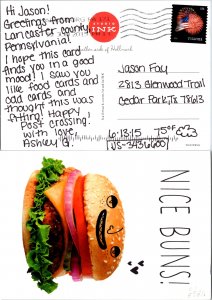 Hi Jason!
Greetings from
Lancaster county
Pennsylvania!
I hope this card
finds you in a good
mood! I saw you
like food cards and
odd cards and
thought this was
fitting! Happy
Post crossing!
with love,
Ashley G.
STUDIO
INK
side of Hallmark
Jason Foy
2813 Glenwood Trail
Cedar Park, TX 78613
6-13-15 75°F
US-3436600
NICE BUNS!